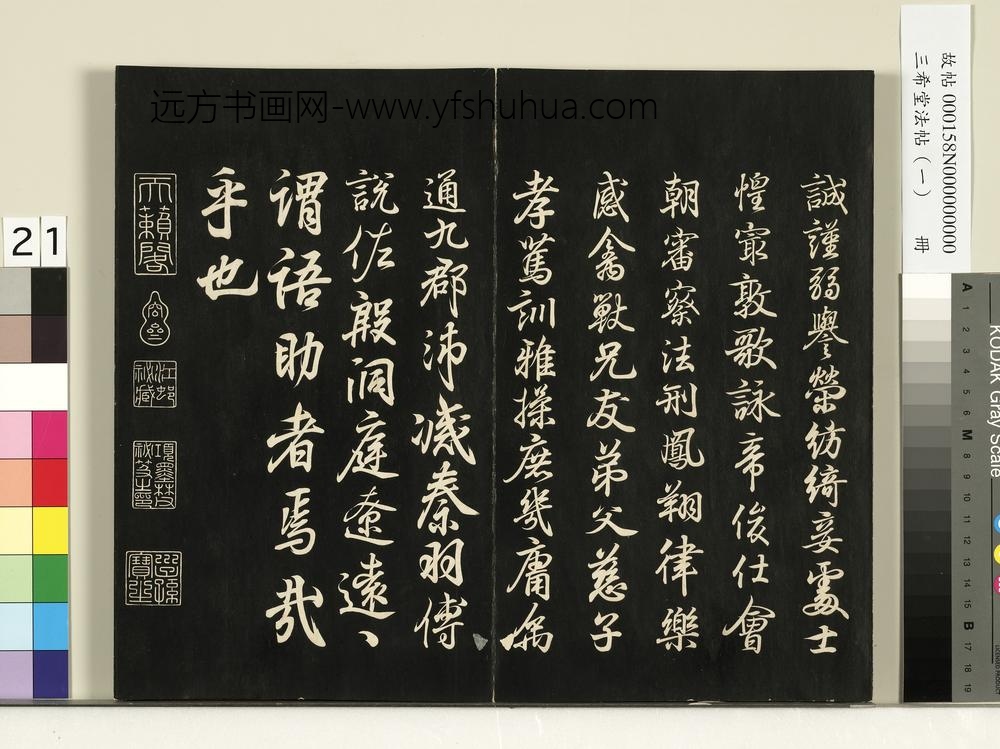 誠謹弱譽榮紡綺妾處士
惶敦歌詠帝俊仕會
朝審察法刑鳳翔律樂
感禽獸兄友弟父慈子
孝篤訓雅操庶幾庸
通九郡沛滅秦羽傅
說佐殷洞庭遼遠
謂語助者焉哉
乎也
天籟閣
江邨祕藏
項墨林祕笈之印
远方书画网-www.yfshuhua.com
故帖 000158N000000000
三希堂法帖(一) 冊
21
KODAK Gray Scale
A 1 2 3 4 5 6 M 8 9 10 11 12 13 14 15 B 17 18 19